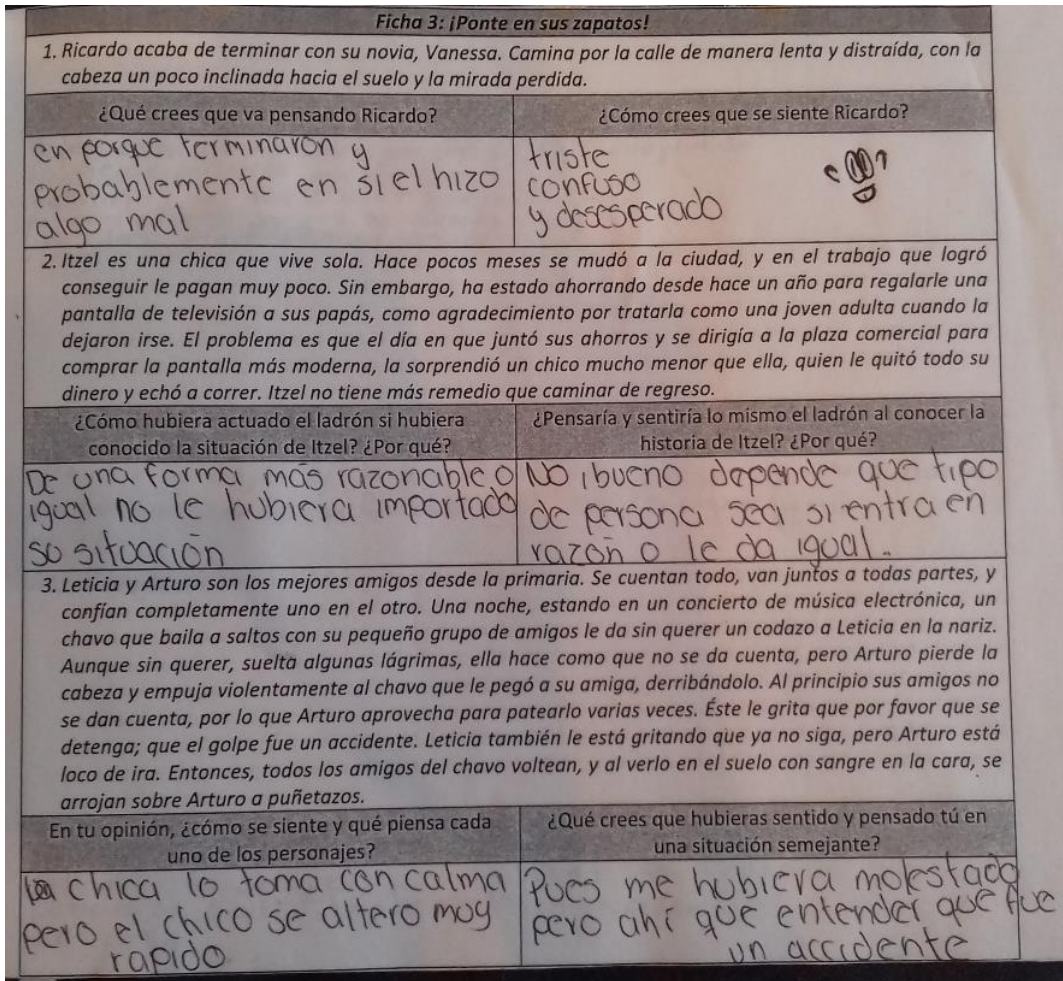 Ficha 3: ¡Ponte en sus zapatos!
1. Ricardo acaba de terminar con su novia, Vanessa. Camina por la calle de manera lenta y distraída, con la
cabeza un poco inclinada hacia el suelo y la mirada perdida.
¿Qué crees que va pensando Ricardo?
¿Cómo crees que se siente Ricardo?
en porque terminaron y
probablemente en si el hizo
algo mal
triste
confuso
y desesperado
2. Itzel es una chica que vive sola. Hace pocos meses se mudó a la ciudad, y en el trabajo que logró
conseguir le pagan muy poco. Sin embargo, ha estado ahorrando desde hace un año para regalarle una
pantalla de televisión a sus papás, como agradecimiento por tratarla como una joven adulta cuando la
dejaron irse. El problema es que el día en que juntó sus ahorros y se dirigía a la plaza comercial para
comprar la pantalla más moderna, la sorprendió un chico mucho menor que ella, quien le quitó todo su
dinero y echó a correr. Itzel no tiene más remedio que caminar de regreso.
¿Cómo hubiera actuado el ladrón si hubiera
conocido la situación de Itzel? ¿Por qué?
¿Pensaría y sentiría lo mismo el ladrón al conocer la
historia de Itzel? ¿Por qué?
De una forma más razonable o
igual no le hubiera importado
su situación
No ¡bueno depende que tipo
de persona sea si entra en
razón o le da igual.
3. Leticia y Arturo son los mejores amigos desde la primaria. Se cuentan todo, van juntos a todas partes, y
confían completamente uno en el otro. Una noche, estando en un concierto de música electrónica, un
chavo que baila a saltos con su pequeño grupo de amigos le da sin querer un codazo a Leticia en la nariz.
Aunque sin querer, suelta algunas lágrimas, ella hace como que no se da cuenta, pero Arturo pierde la
cabeza y empuja violentamente al chavo que le pegó a su amiga, derribándolo. Al principio sus amigos no
se dan cuenta, por lo que Arturo aprovecha para patearlo varias veces. Éste le grita que por favor que se
detenga; que el golpe fue un accidente. Leticia también le está gritando que ya no siga, pero Arturo está
loco de ira. Entonces, todos los amigos del chavo voltean, y al verlo en el suelo con sangre en la cara, se
arrojan sobre Arturo a puñetazos.
En tu opinión, ¿cómo se siente y qué piensa cada
uno de los personajes?
¿Qué crees que hubieras sentido y pensado tú en
una situación semejante?
La chica lo toma con calma
pero el chico se altero muy
rapido
Pues me hubiera molestado
pero ahí que entender que fue
un accidente